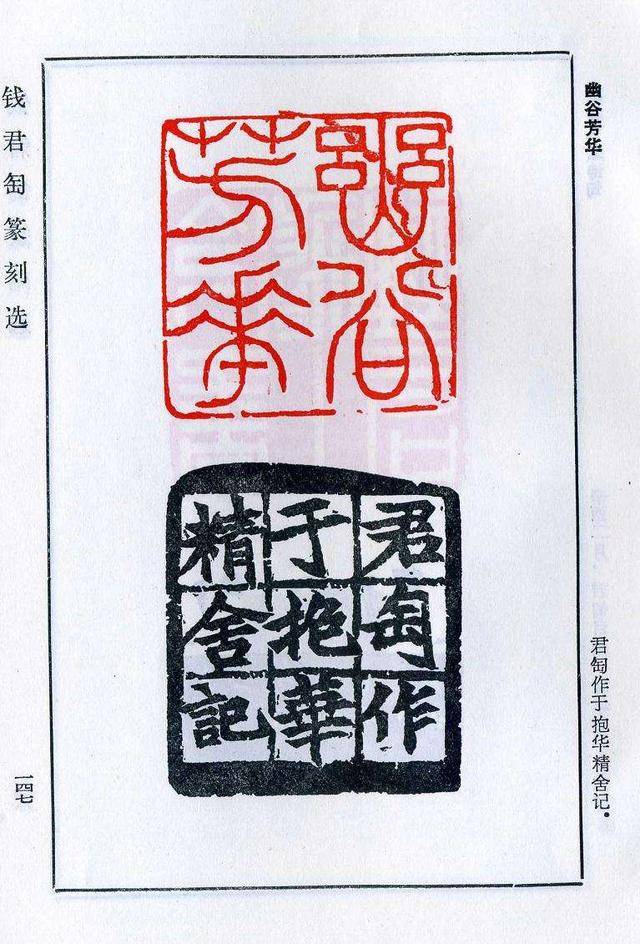 幽谷芳华
幽谷
芳華
君匋作
于抱華
精舍記
君匋作于抱华精舍记。
钱君匋篆刻选
一四七